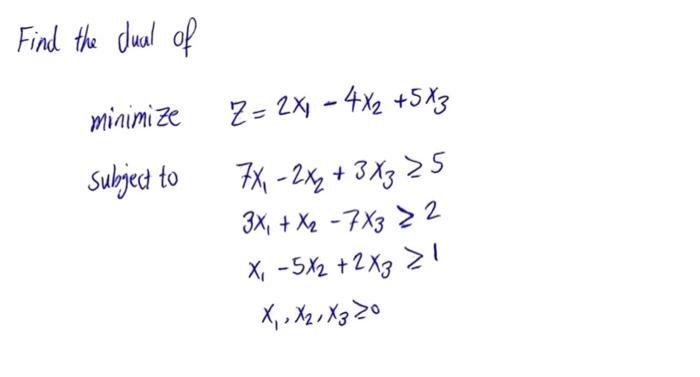 Find the dual of
minimize Z = 2x₁ - 4x₂ + 5x₃
subject to 7x₁ - 2x₂ + 3x₃ ≥ 5
3x₁ + x₂ - 7x₃ ≥ 2
x₁ - 5x₂ + 2x₃ ≥ 1
x₁, x₂, x₃ ≥ 0